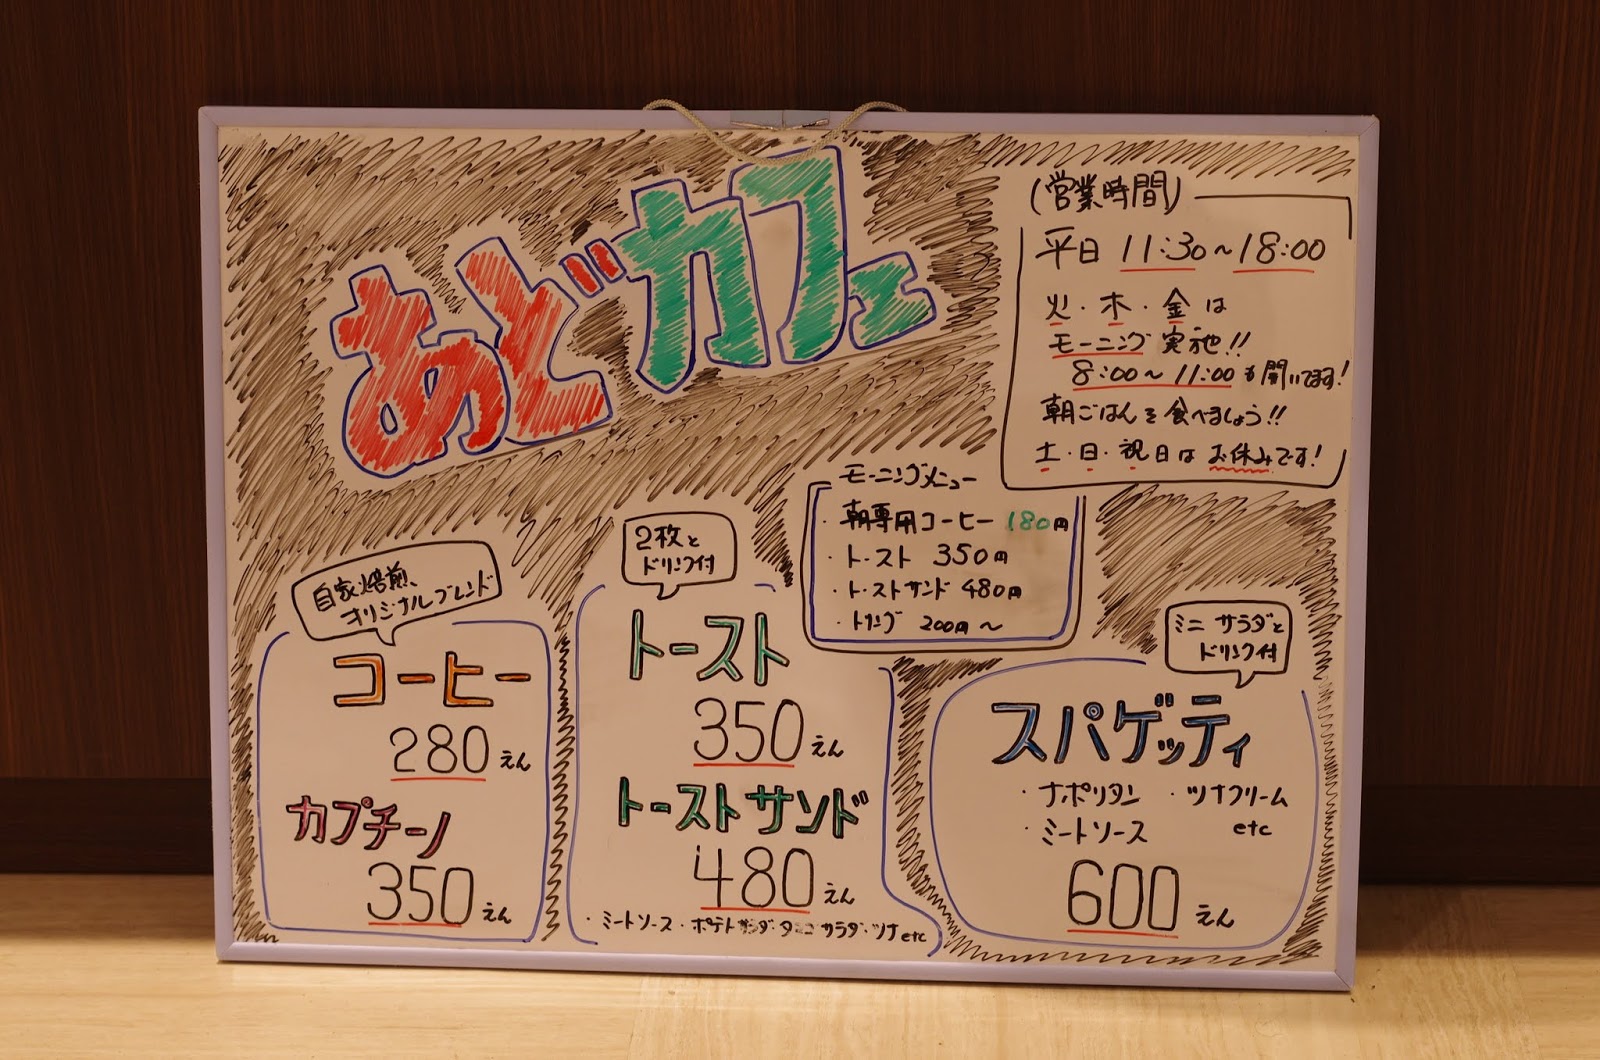 あどカフェ
(営業時間)
平日 11:30～18:00
火・木・金は
モーニング実施!!
8:00～11:00も開いてます!
朝ごはんを食べましょう!!
土・日・祝日はお休みです!
モーニングメニュー
・朝専用コーヒー 180円
・トースト 350円
・トーストサンド 480円
・ドリンク 200円～
自家焙煎、
オリジナルブレンド
コーヒー
280えん
カプチーノ
350えん
2枚と
ドリンク付
トースト
350えん
トーストサンド
480えん
・ミートソース・ポテトサラダ・タマゴサラダ・ツナetc
ミニサラダと
ドリンク付
スパゲッティ
・ナポリタン ・ツナクリーム
・ミートソース etc
600えん